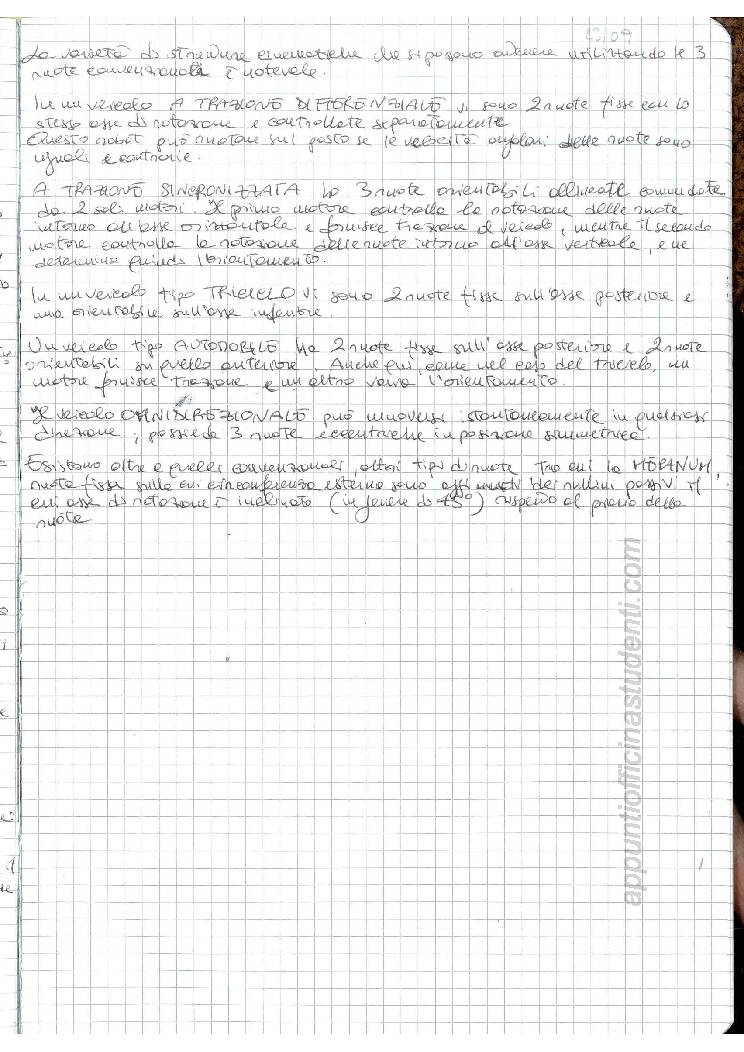 23/09
La varietà di strutture cinematiche che si possono ottenere utilizzando le 3
ruote convenzionali è notevole.
In un veicolo A TRAZIONE DIFFERENZIALE vi sono 2 ruote fisse con lo
stesso asse di rotazione e controllate separatamente
Questo robot può ruotare sul posto se le velocità angolari delle ruote sono
uguali e contrarie.
A TRAZIONE SINCRONIZZATA ha 3 ruote orientabili allineate comandate
da 2 soli motori. Il primo motore controlla la rotazione delle ruote
intorno all'asse orizzontale e fornisce trazione al veicolo, mentre il secondo
motore controlla la rotazione delle ruote intorno all'asse verticale, e ne
determina quindi l'orientamento.
In un veicolo tipo TRICICLO vi sono 2 ruote fisse sull'asse posteriore e
una orientabile sull'asse
Un veicolo tipo AUTOMOBILE ha 2 ruote fisse sull'asse posteriore e 2 ruote
orientabili su quello anteriore. Anche qui, come nel caso del triciclo, un
motore fornisce trazione e un altro varia l'orientamento.
Il veicolo OMNIDIREZIONALE può muoversi istantaneamente in qualsiasi
direzione, possiede 3 ruote eccentriche in posizione simmetrica.
Esistono oltre a quelle convenzionali, altri tipi di ruote tra cui la MECANUM,
ruote fisse sulla cui circonferenza esterna sono dei rullini passivi il
cui asse di rotazione è inclinato (in genere di 45°) rispetto al piano della
ruota
appuntiofficinastudenti.com